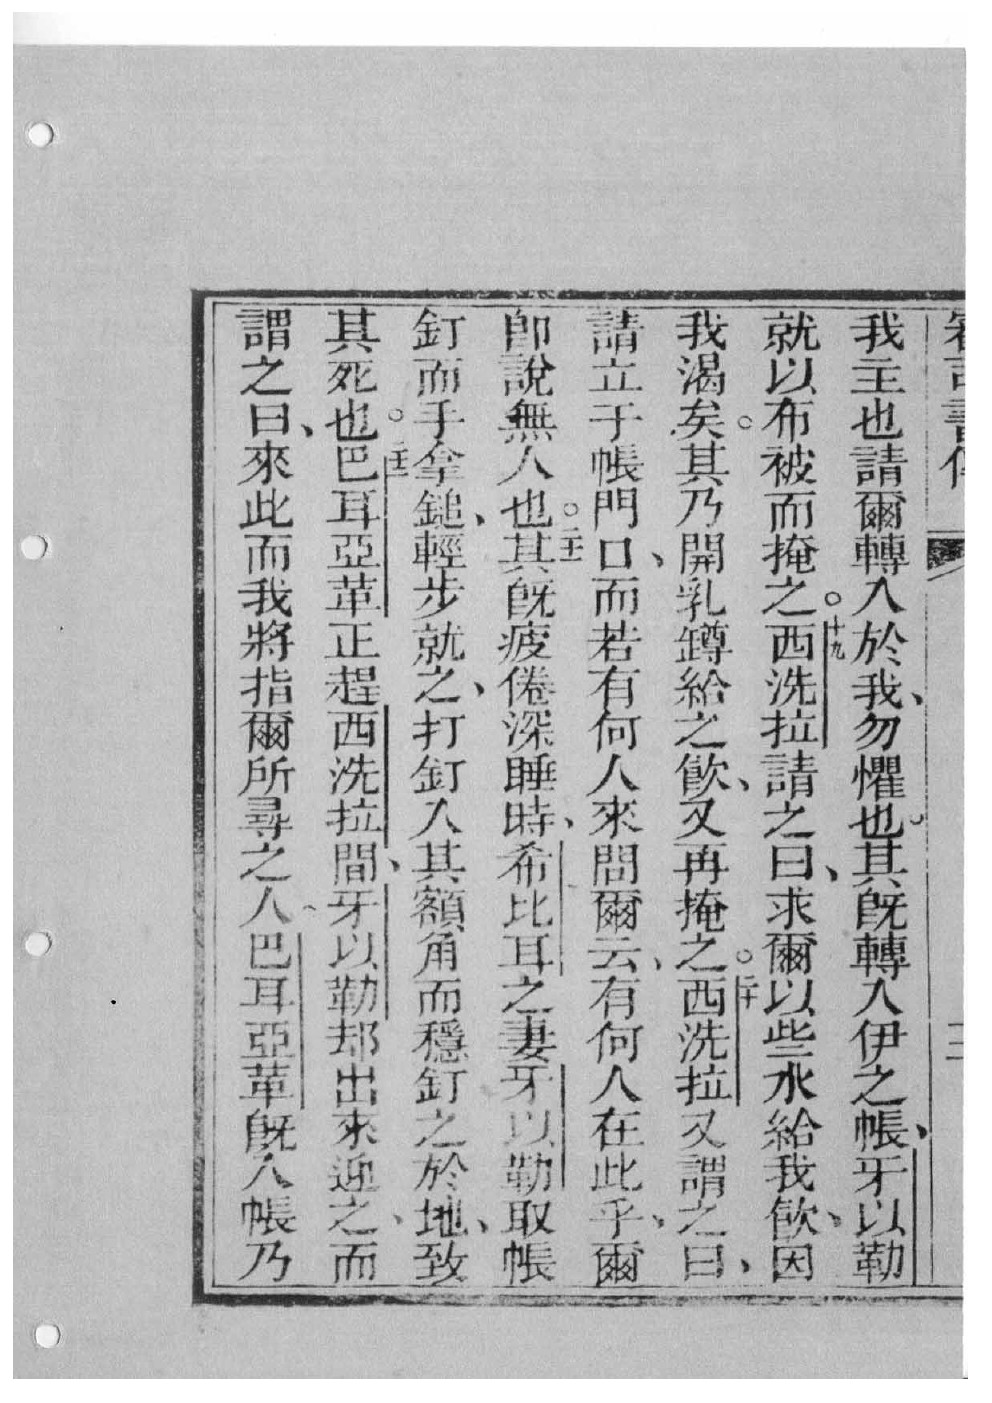 審司書傳
我主也請爾轉入於我、勿懼也。其旣轉入伊之帳、牙以勒
就以布被而掩之。十九西洗拉請之曰、求爾以些水給我飮、因
我渴矣。其乃開乳罇給之飮、又再掩之。二十西洗拉又謂之曰、
請立于帳門口、而若有何人來問爾云、有何人在此乎、爾
卽說無人也。二十一其旣疲倦深睡時、希比耳之妻牙以勒取帳
釘而手拿鎚、輕步就之、打釘入其額角而穩釘之於地、致
其死也。二十二巴耳亞革正趕西洗拉間、牙以勒却出來迎之、而
謂之曰、來此而我將指爾所尋之人、巴耳亞革旣入帳乃